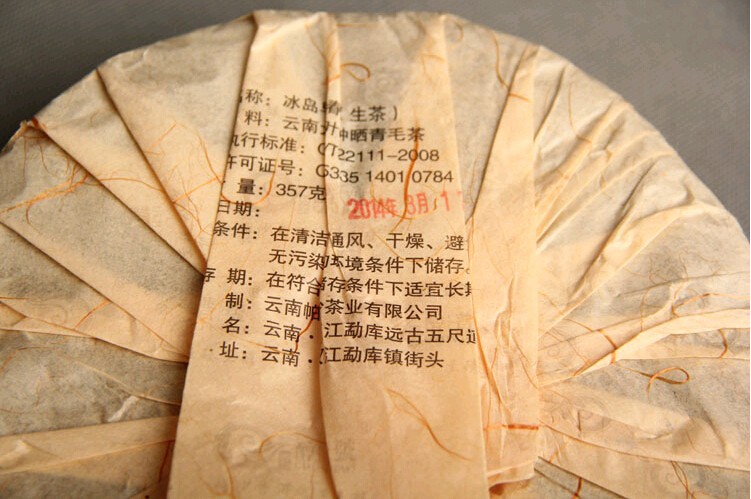 称：冰岛（生茶）
料：云南种晒青毛茶
执行标准：GT22111-2008
许可证号：G335 1401 0784
量：357克
日期：2014年3月1
条件：在清洁通风、干燥、避
无污染环境条件下储存。
存期：在符合储存条件下适宜长期
制：云南帕茶业有限公司
名：云南·江勐库远古五尺道
址：云南·江勐库镇街头